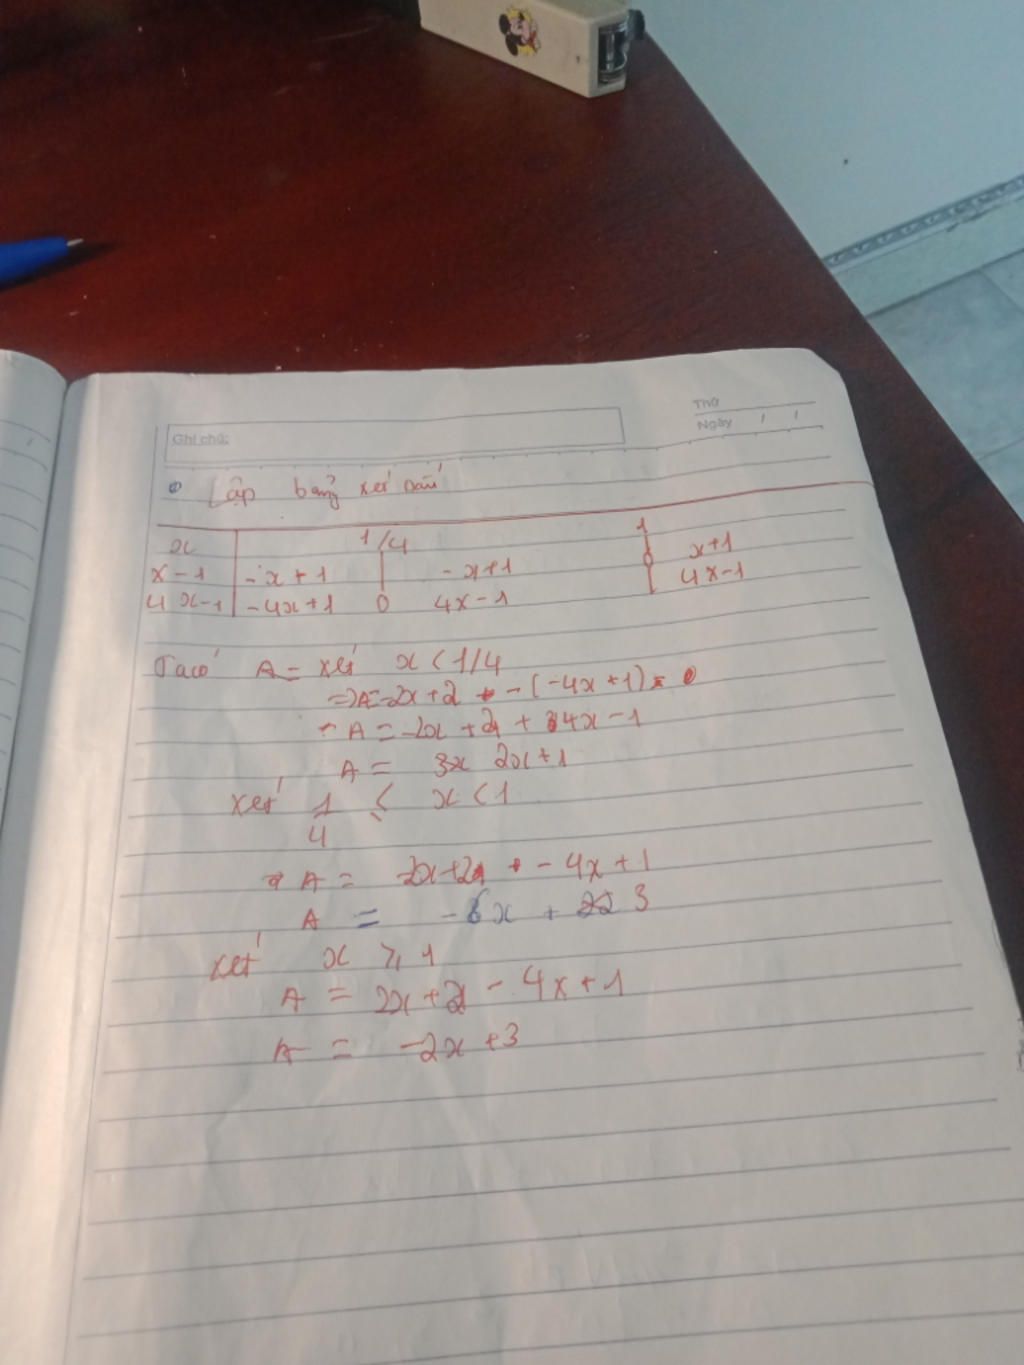 Thứ
Ngày / /
Ghi chú:
Lập bảng xét dấu
x 1/4 1
x - 1 -x + 1 -x+1 0 x+1
4x-1 -4x+1 0 4x-1 4x-1
Ta có A = xét x < 1/4
=> A=-2x+2 - (-4x+1)
A = -2x + 2 + 4x - 1
A = 2x+1
xét 1/4 ≤ x < 1
A = -2x+2 - 4x + 1
A = -6x + 3
xét x ≥ 1
A = 2x+2 - 4x+1
A = -2x +3